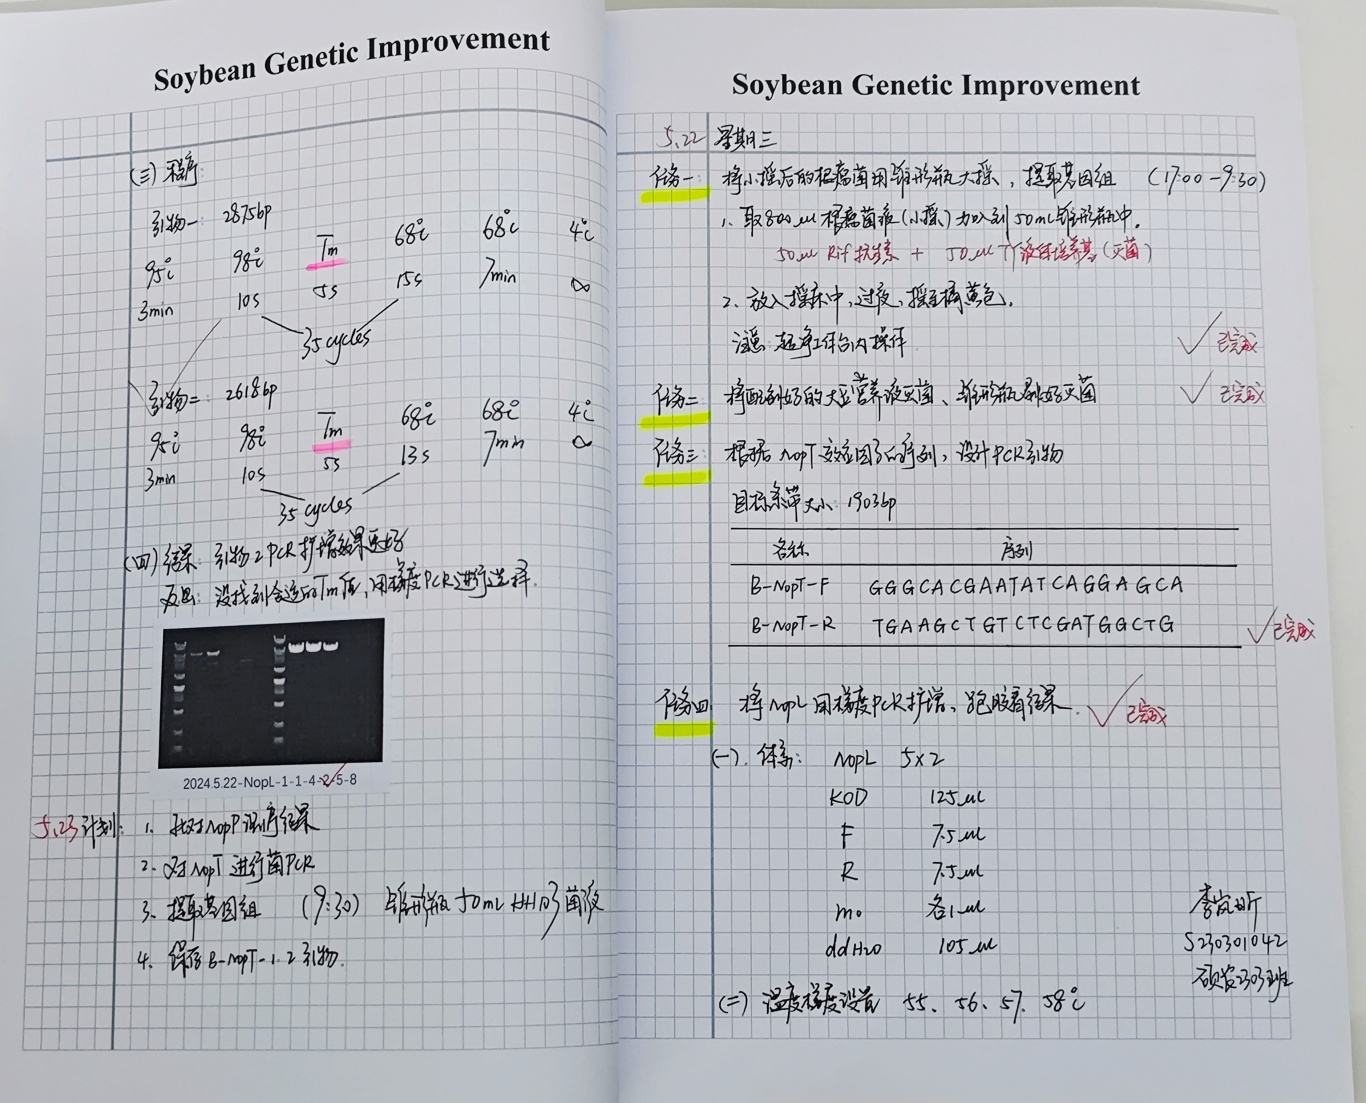 Soybean Genetic Improvement
(三) 程序
引物一: 2875bp
95℃ 98℃ Tm 68℃ 68℃ 4℃
3min 10s 5s 15s 7min ∞
35 cycles
引物二: 2618bp
95℃ 98℃ Tm 68℃ 68℃ 4℃
3min 10s 5s 13s 7min ∞
35 cycles
(四) 结果: 引物2PCR扩增效果更好
反思: 没找到合适的Tm值,用梯度PCR进行选择.
2024.5.22-NopL-1-1-4-2-5-8
5.23计划: 1. 比对NopP测序结果
2. 对NopT进行菌PCR
3. 提取基因组 (9:30) 锥形瓶50mL HH103菌液
4. 保存B-NopT-1.2引物.
Soybean Genetic Improvement
5.22 星期三
任务一: 将小摇后的根瘤菌用锥形瓶大摇,提取基因组 (17:00-9:30)
1. 取800μl根瘤菌液(小摇)加入到50mL锥形瓶中.
50μl Rif抗生素 + 50μl TY液体培养基(灭菌)
2. 放入摇床中,过夜,摇至橘黄色.
注意: 超净工作台内操作 已完成
任务二: 将配制好的大豆营养液灭菌、锥形瓶刷好灭菌 已完成
任务三: 根据NopT效应因子的序列,设计PCR引物
目标条带大小: 1903bp
名称 序列
B-NopT-F GGGCACGAATATCAGGAGCA
B-NopT-R TGAAGCTGTCTCGATGGCTG 已完成
任务四: 将NopL用梯度PCR扩增、跑胶看结果. 已完成
(一). 体系: NopL 5×2
KOD 125μl
F 7.5μl
R 7.5μl
mo 各1μl
ddH2O 105μl
(二) 温度梯度设置 55、56、57、58℃
李岚昕
S230301042
硕农2303班